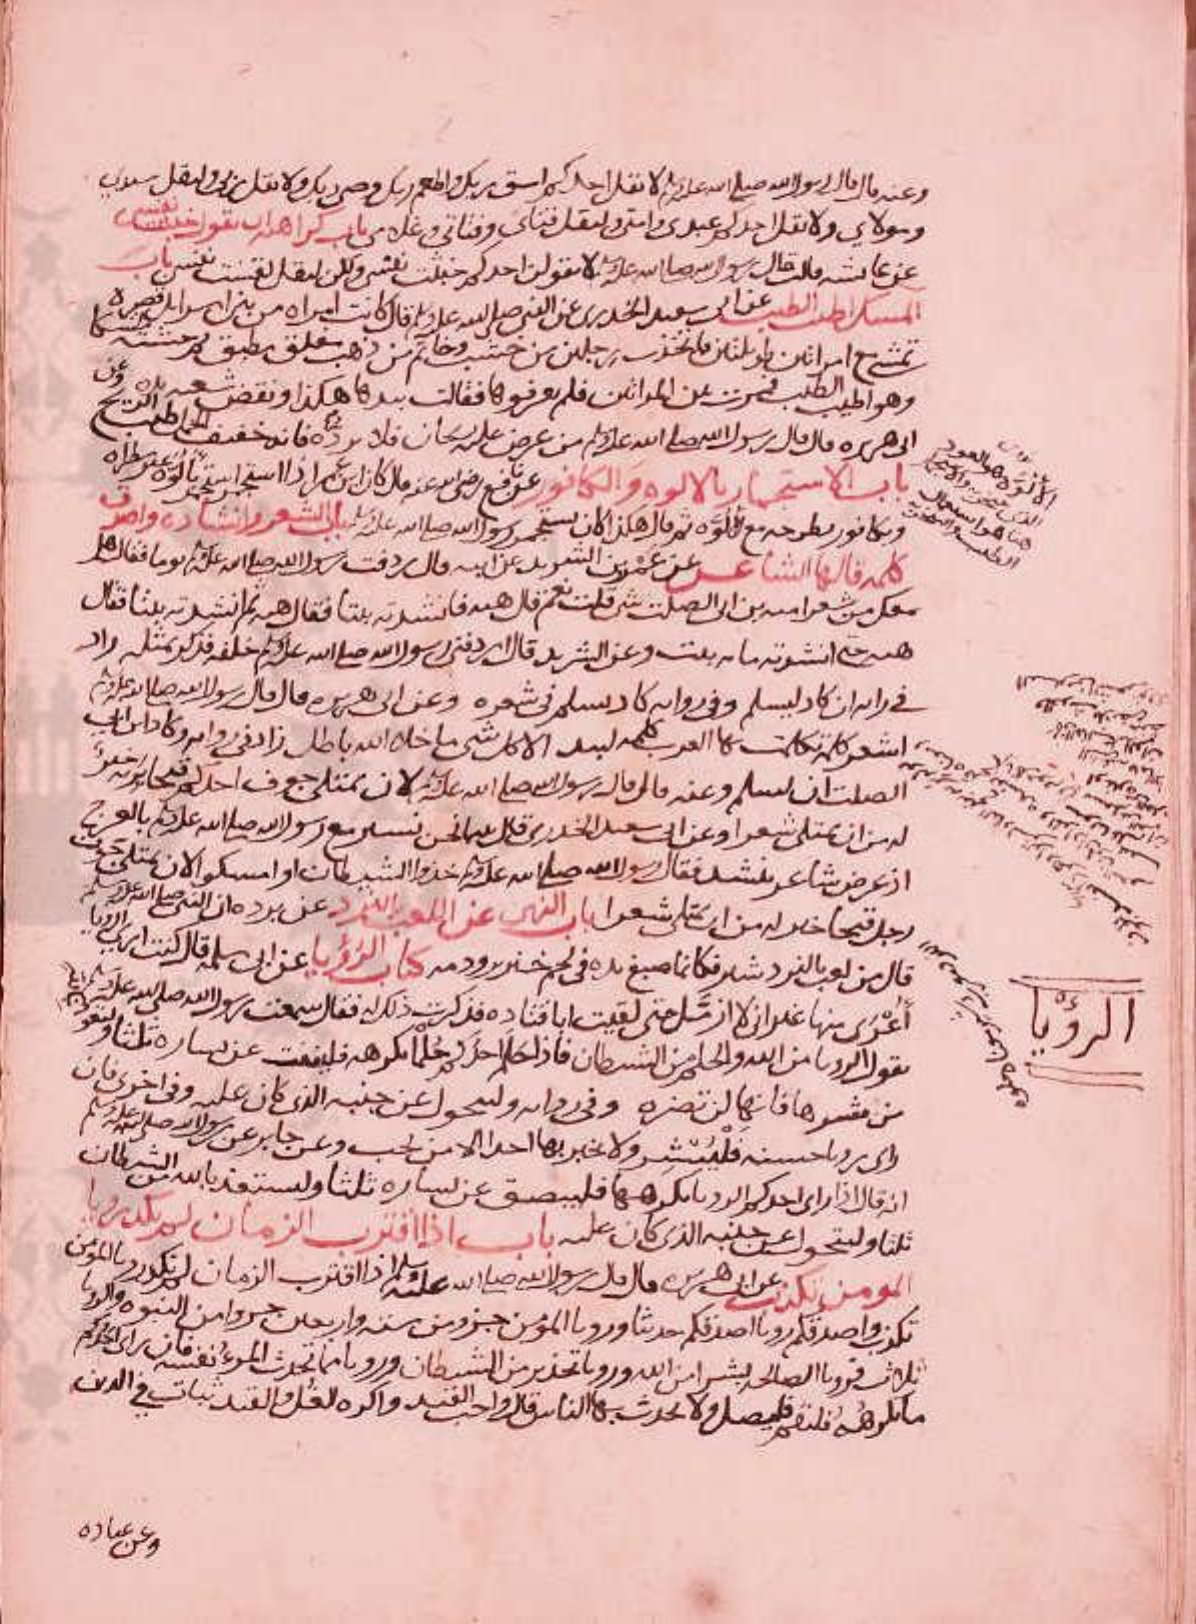 وعنه قال قال رسول الله صلى الله عليه وسلم لا يقل احدكم اسق ربك واطعم ربك وضئ ربك ولا يقل ربي وليقل سيدي
ومولاي ولا يقل احدكم عبدي وامتي وليقل فتاي وفتاتي وغلامي باب كراهة ان يقول خبثت نفسي
عن عائشه قالت قال رسول الله صلى الله عليه وسلم لا يقولن احدكم خبثت نفسي ولكن ليقل لقست نفسي باب
المسك اطيب الطيب عن ابي سعيد الخدري عن النبي صلى الله عليه وسلم قال كانت امراه من بني اسرائيل قصيرة
تمشي مع امراتين طويلتين فاتخذت رجلين من خشب وخاتم من ذهب مغلق مطبق ثم حشته مسكا
وهو اطيب الطيب فمرت بين المراتين فلم يعرفوها فقالت بيدها هكذا ونفض شعبه يده وعن
ابي هريره قال قال رسول الله صلى الله عليه وسلم من عرض عليه ريحان فلا يرده فانه خفيف المحمل طيب الريح
باب الاستجمار بالالوه والكافور عن نافع رضي الله عنه قال كان ابن عمر اذا استجمر استجمر بألوة غير مطراه
وبكافور يطرحه مع الألوه ثم قال هكذا كان يستجمر رسول الله صلى الله عليه وسلم باب الشعر وانشاده واصدق
كلمه قالها الشاعر عن عمرو بن الشريد عن ابيه قال ردفت رسول الله صلى الله عليه وسلم يوما فقال هل
معك من شعر اميه بن ابي الصلت شئ قلت نعم قال هيه فانشدته بيتا فقال هيه ثم انشدته بيتا فقال
هيه حتى انشدته مايه بيت وعن الشريد قال اردفني رسول الله صلى الله عليه وسلم خلفه فذكر بمثله وزاد
في روايه ان كاد ليسلم وفي روايه كاد يسلم في شعره وعن ابي هريره قال قال رسول الله صلى الله عليه وسلم
اشعر كلمة تكلمت بها العرب كلمه لبيد الا كل شي ما خلا الله باطل زاد في روايه وكاد ابن ابي
الصلت ان يسلم وعنه قال قال رسول الله صلى الله عليه وسلم لان يمتلئ جوف احدكم قيحا يريه خير
له من ان يمتلئ شعرا وعن ابي سعيد الخدري قال بينما نحن نسير مع رسول الله صلى الله عليه وسلم بالعرج
اذ عرض شاعر ينشد فقال رسول الله صلى الله عليه وسلم خذوا الشيطان او امسكوا لان يمتلئ جوف
رجل قيحا خير له من ان يمتلئ شعرا باب النهي عن اللعب بالنرد عن بريده ان النبي صلى الله عليه وسلم
قال من لعب بالنردشير فكانما صبغ يده في لحم خنزير ودمه كتاب الرؤيا عن ابي سلمه قال كنت ارى الرويا
أعرى منها غير اني لا ازمل حتى لقيت ابا قتاده فذكرت ذلك له فقال سمعت رسول الله صلى الله عليه وسلم
يقول الرويا من الله والحلم من الشيطان فاذا حلم احدكم حلما يكرهه فلينفث عن يساره ثلثا وليتعوذ بالله
من شرها فانها لن تضره وفي روايه وليتحول عن جنبه الذي كان عليه وفي اخرى فان
راى رويا حسنه فليبشر ولا يخبر بها احدا الا من يحب وعن جابر عن رسول الله صلى الله عليه وسلم
انه قال اذا راى احدكم الرويا يكرهها فليبصق عن يساره ثلثا وليستعذ بالله من الشيطان
ثلثا وليتحول عن جنبه الذي كان عليه باب اذا اقترب الزمان لم تكد رويا
المومن تكذب عن ابي هريره قال قال رسول الله صلى الله عليه وسلم اذا اقترب الزمان لم تكد رويا المومن
تكذب واصدقكم رويا اصدقكم حديثا ورويا المؤمن جزو من سته واربعين جزوا من النبوه والرويا
ثلاث فرويا الصالحه بشرى من الله ورويا تحذير من الشيطان ورويا مما تحدث المرء نفسه فان راى احدكم
ما يكرهه فليقم فليصل ولا يحدث بها الناس قال واحب القيد واكره الغل والقيد ثبات في الدين
وعن عباده
الألوة هو العود
الرؤيا